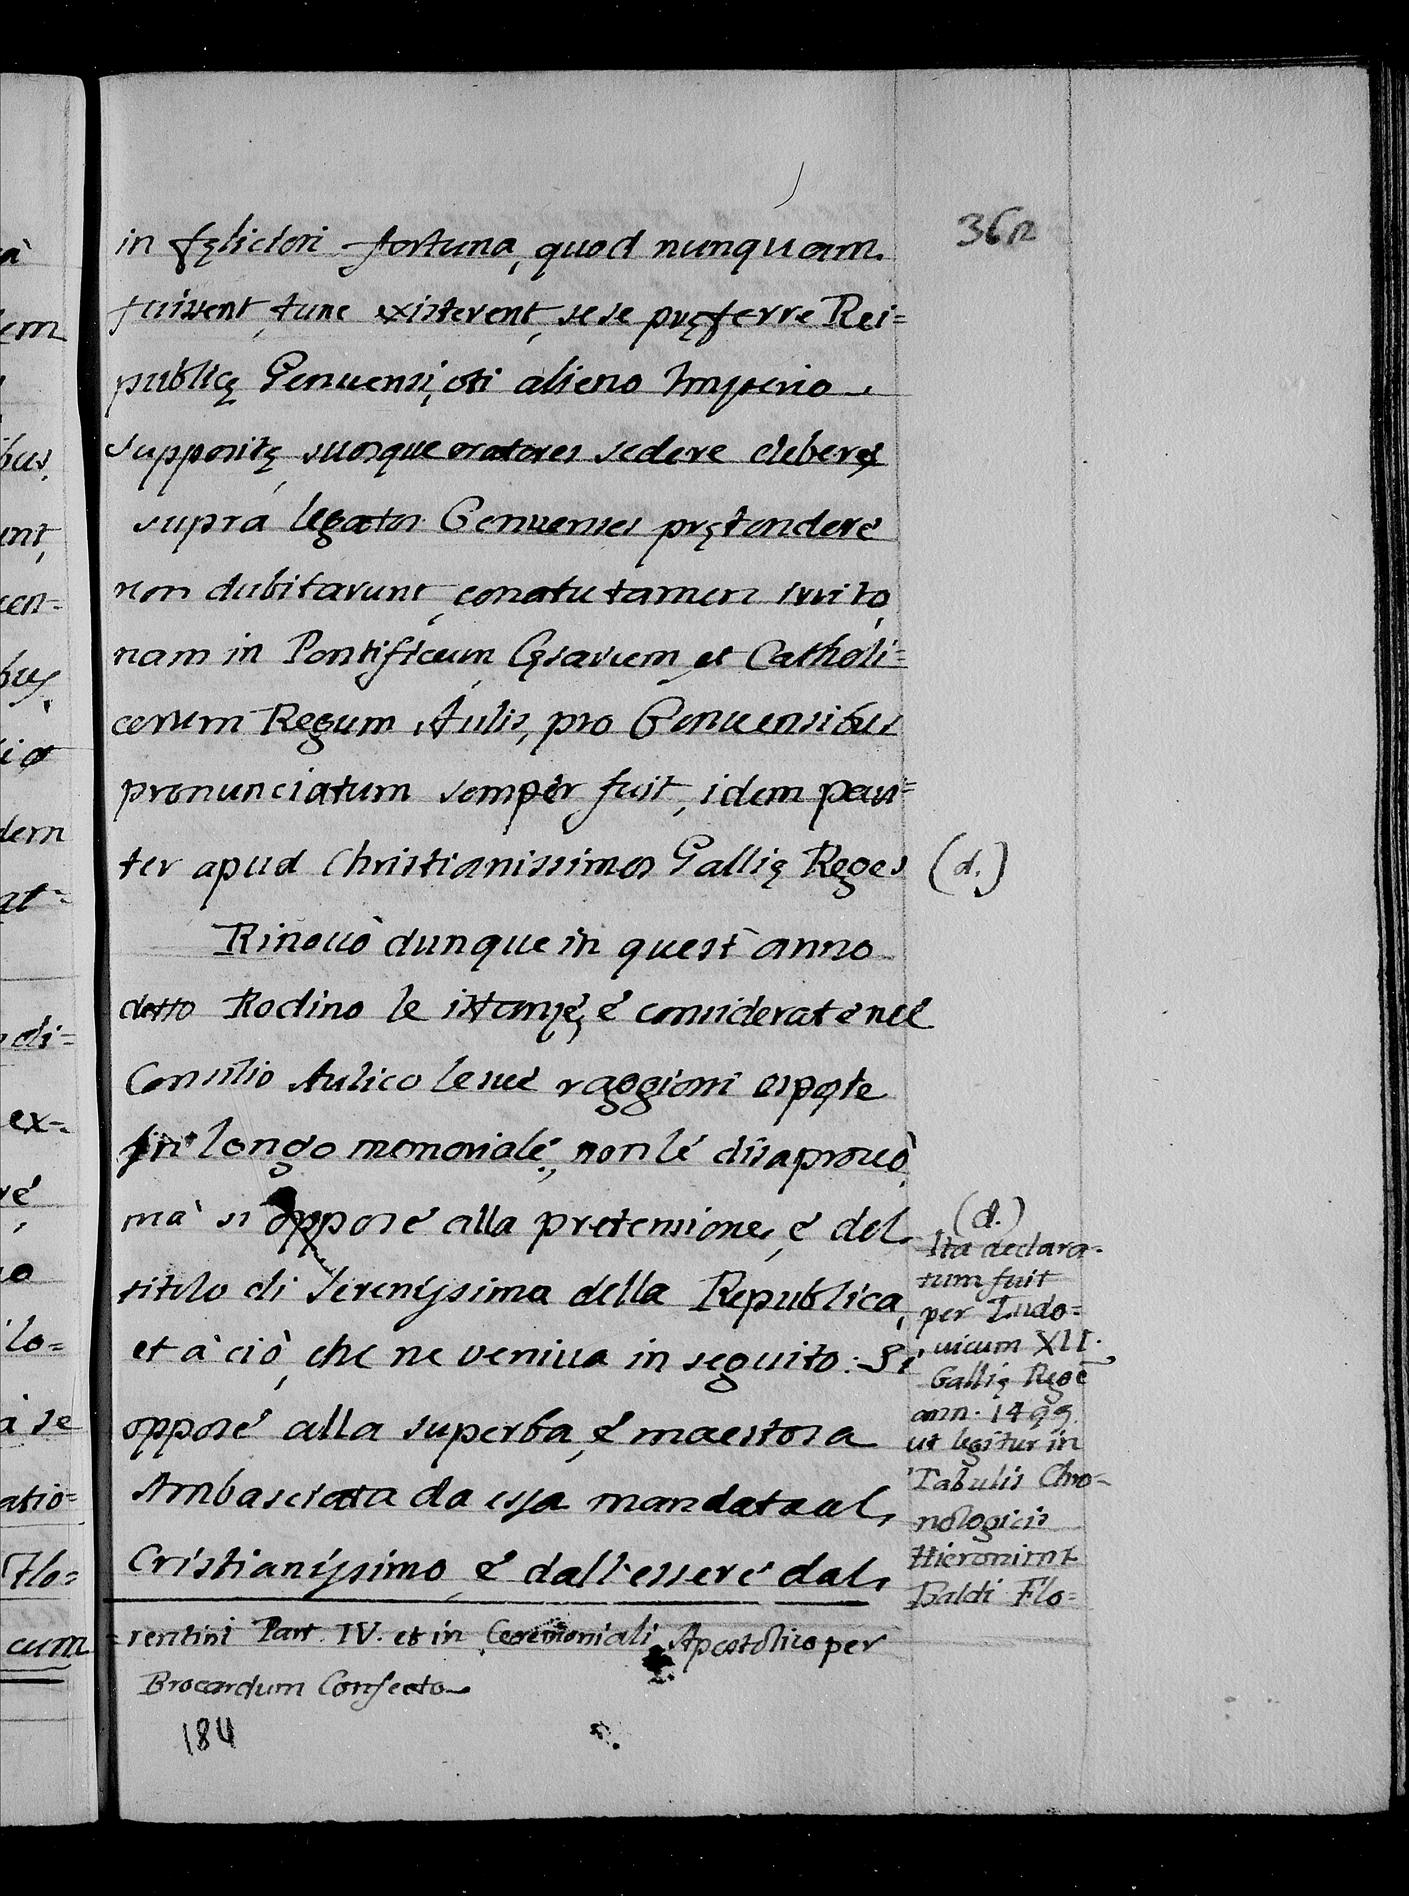 362
in fęliciori fortuna, quod nunquam
fuivent, tunc existerent, se se pręferre Rei=
publicę Genuensi, oti alieno Imperio
suppositę, suosque oratores sedere debere
supra legatos Genuenses prętendere
non dubitarunt, conatu tamen irrito,
nam in Pontificum, Cęsarum, et Catholi=
corum Regum Aulis, pro Genuensibus
pronunciatum semper fuit, idem pari=
ter apud Christianissimos Gallię Reges (d.)
Rinouò dunque in quest'anno
detto Rodino le istanze, è considerate nel
Consilio Aulico le sue raggioni esposte
in longo memoriale, non le disaprouò,
mà si oppose alla pretensione, è del
titolo di Serenissima della Republica,
et à ciò, che ne veniua in seguito. Si
oppose alla superba, è maestosa
Ambasciata da essa mandata al
Cristianissimo, è dall'essere dal
(d.)
Ita declara-
tum fuit
per Ludo=
uicum XII.
Gallię Regē
ann. 1499
ut legitur in
Tabulis Chro-
nologicis
Hieronimi
Baldi Flo=
=rentini Part. IV. et in Ceremoniali Apostolico per
Brocardum Confecto
184